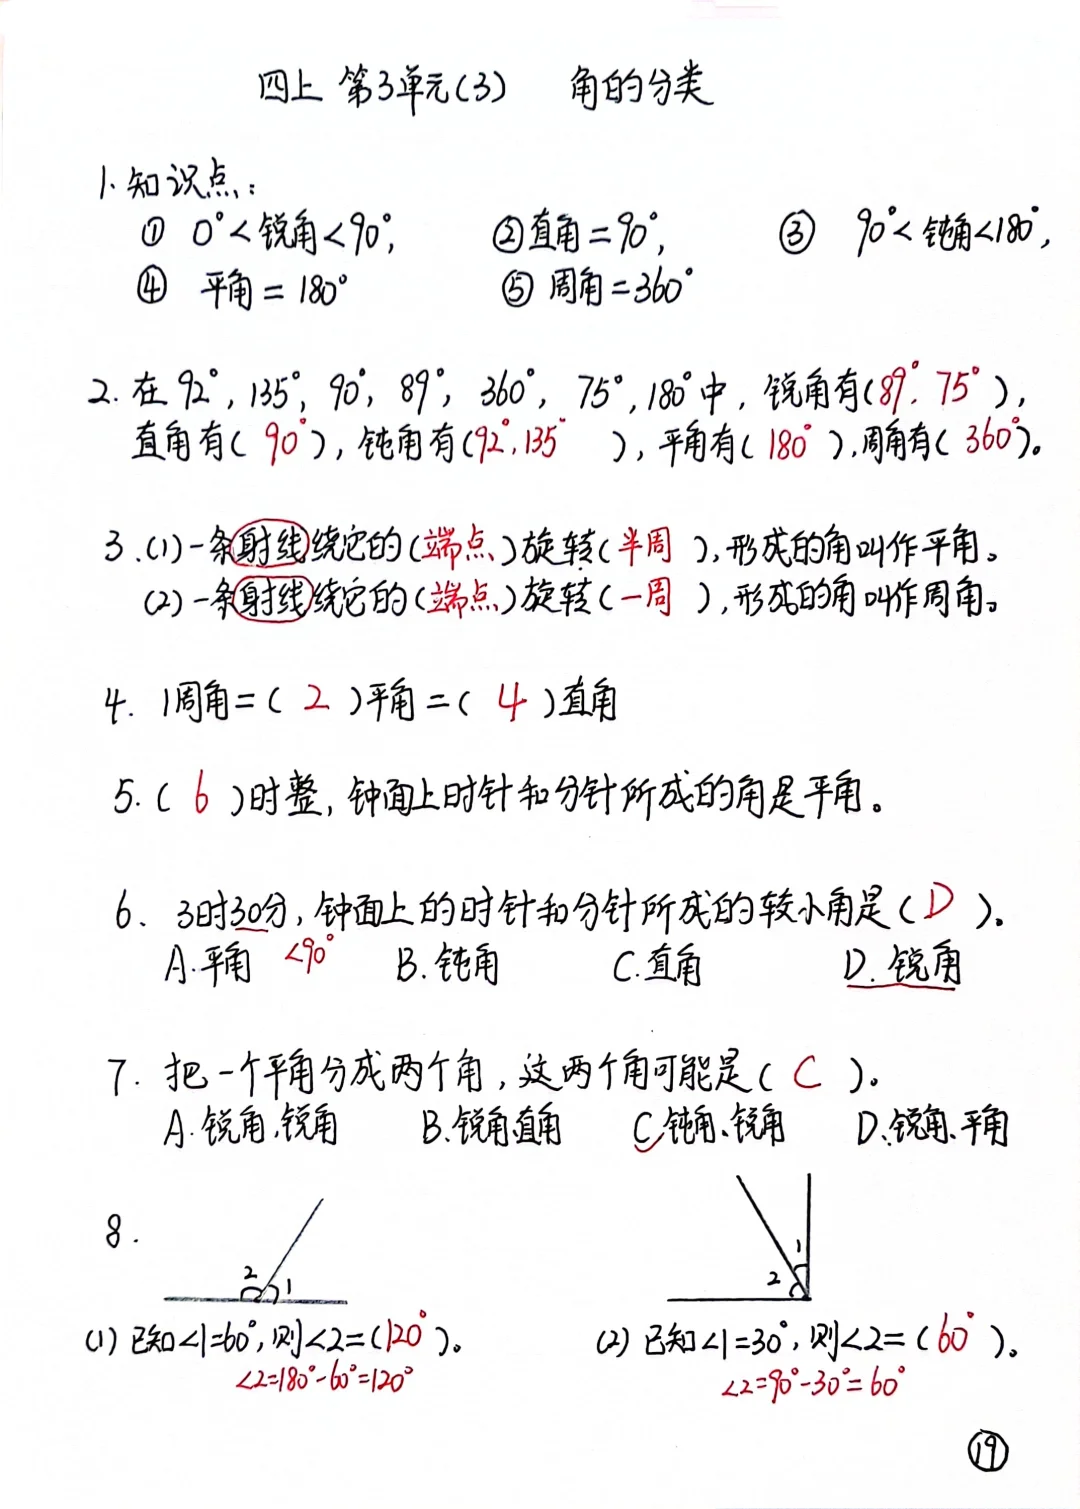 四上 第3单元(3) 角的分类
1.知识点:
① 0°<锐角<90°, ②直角=90°, ③ 90°<钝角<180°,
④ 平角=180° ⑤ 周角=360°
2.在92°,135°,90°,89°,360°,75°,180°中,锐角有(89°.75°),
直角有(90°),钝角有(92°.135°),平角有(180°),周角有(360°)。
3.(1)一条射线绕它的(端点)旋转(半周),形成的角叫作平角。
(2)一条射线绕它的(端点)旋转(一周),形成的角叫作周角。
4. 1周角=(2)平角=(4)直角
5.(6)时整,钟面上时针和分针所成的角是平角。
6. 3时30分,钟面上的时针和分针所成的较小角是(D)。
<90°
A.平角 B.钝角 C.直角 D.锐角
7. 把一个平角分成两个角,这两个角可能是(C)。
A.锐角、锐角 B.锐角、直角 C.钝角、锐角 D.锐角、平角
8.
2 1
1
2
(1)已知∠1=60°,则∠2=(120°)。 (2)已知∠1=30°,则∠2=(60°)。
∠2=180°-60°=120° ∠2=90°-30°=60°
19